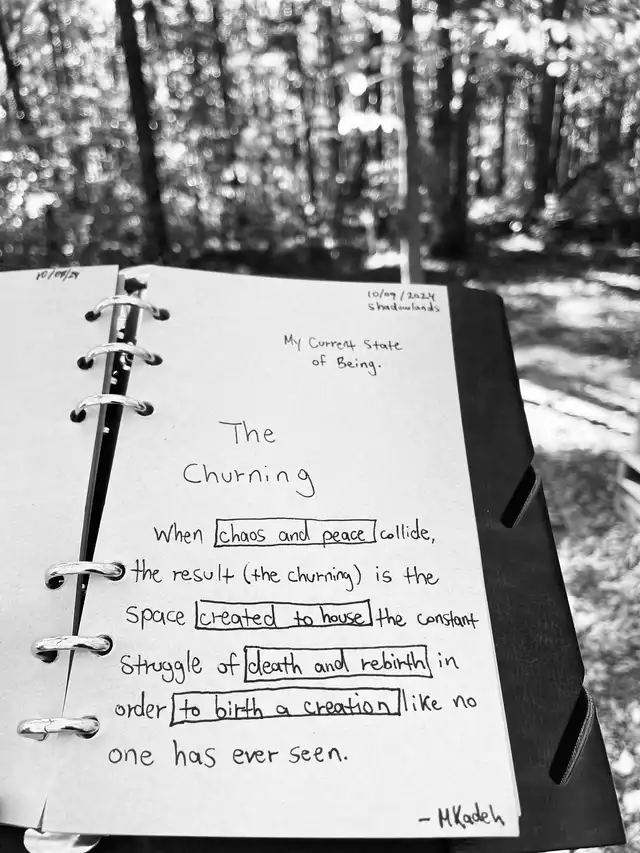 10/09/2024
Shadowlands
My Current State
of Being.
The
Churning
When chaos and peace collide,
the result (the churning) is the
space created to house the constant
struggle of death and rebirth in
order to birth a creation like no
one has ever seen.
- MKadeh